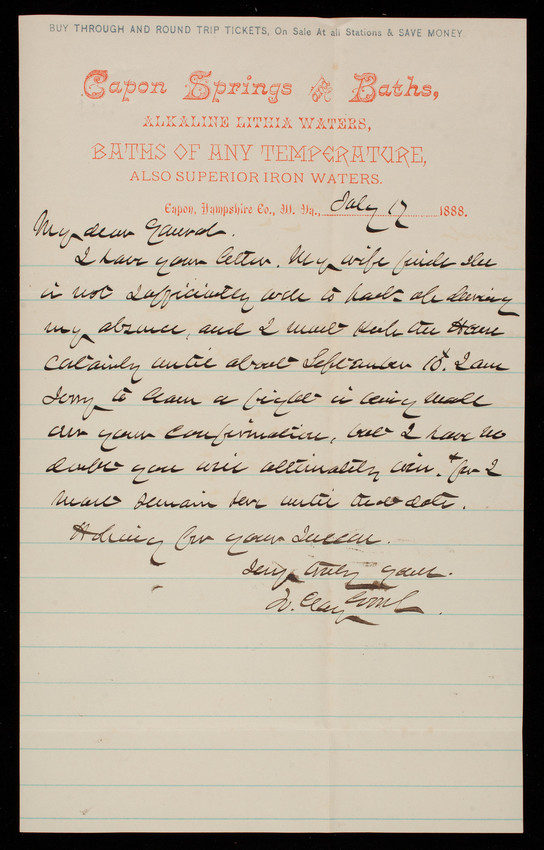 BUY THROUGH AND ROUND TRIP TICKETS, On Sale At all Stations & SAVE MONEY
Capon Springs and Baths,
ALKALINE LITHIA WATERS,
BATHS OF ANY TEMPERATURE,
ALSO SUPERIOR IRON WATERS.
Capon, Hampshire Co., W. Va., July 17 1888.
My dear
I have your letter. My wife finds she
is not sufficiently well to during
my absence, and I must keep the House
certainly until about September 10th. I am
sorry to learn a fight is being made
over your confirmation, but I have no
doubt you will ultimately win.
must remain here until that date.
for your success.
Very truly yours.
Clay